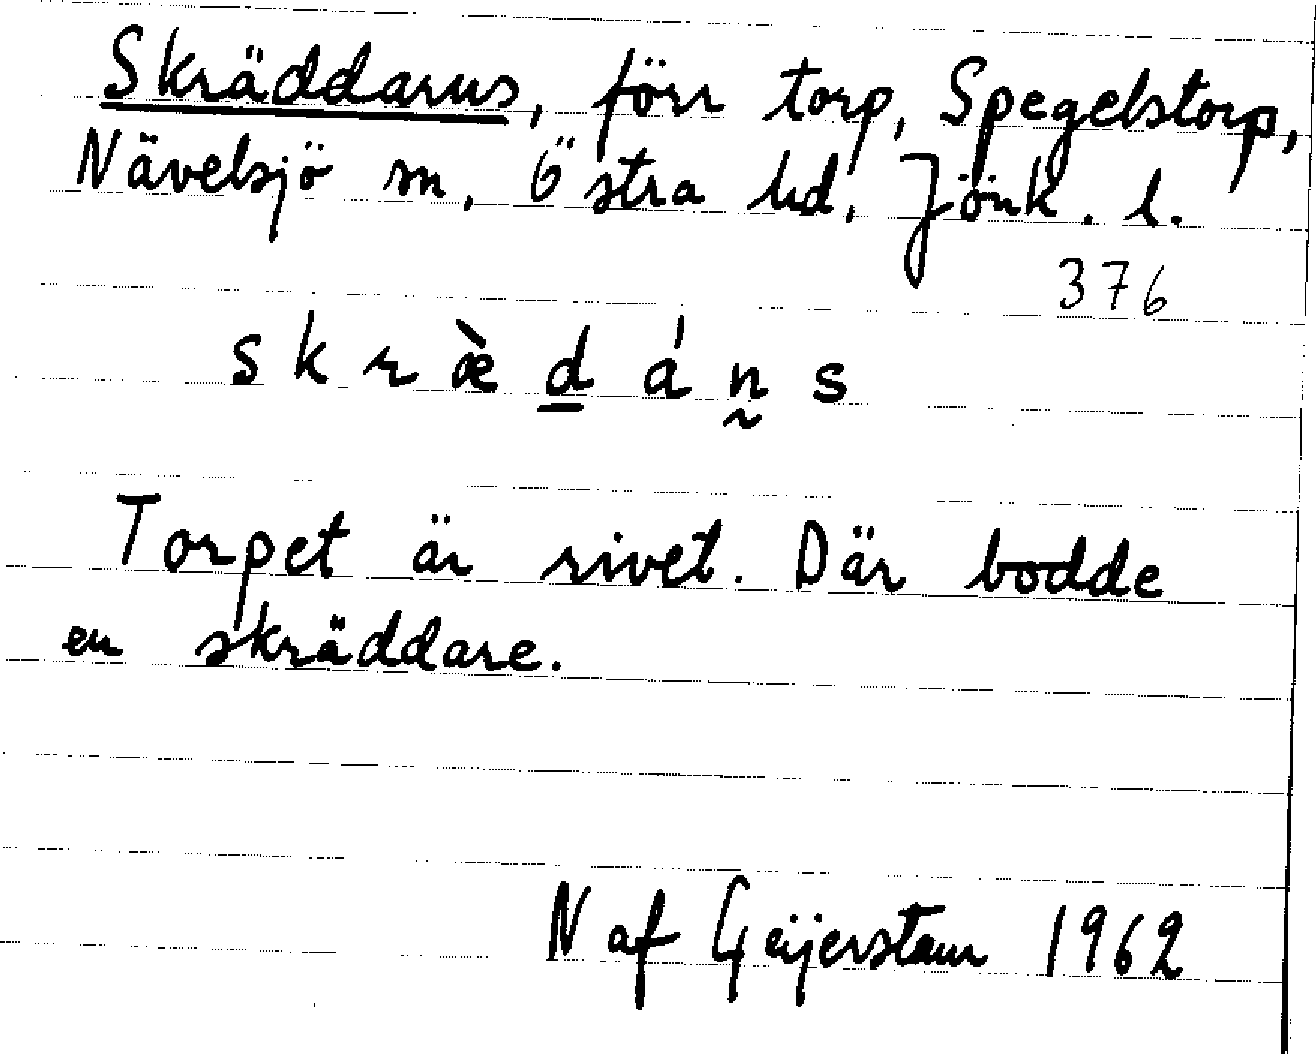 Skräddarns, förr torp, Spegelstorp,
Nävelsjö sn, Östra hd, Jönk. l.
376
s k r æ̀ d̲ á n̰ s
Torpet är rivet. Där bodde
en skräddare.
N af Geijerstam 1962